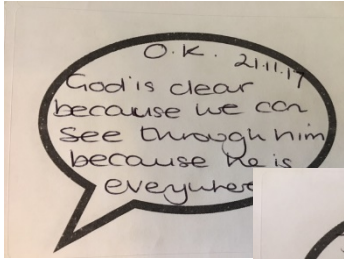 O.K. 21.11.17
God is clear
because we can
see through him
because he is
everywhere